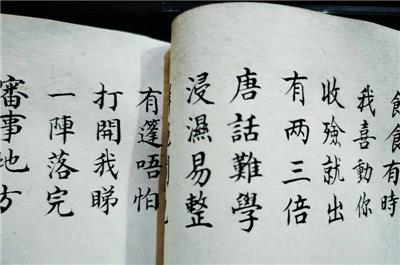 飽餓有時
我喜動你
收殮就出
有两三倍
唐話難學
浸濕易整
有篷唔怕
打開我睇
一陣落完
審事地方